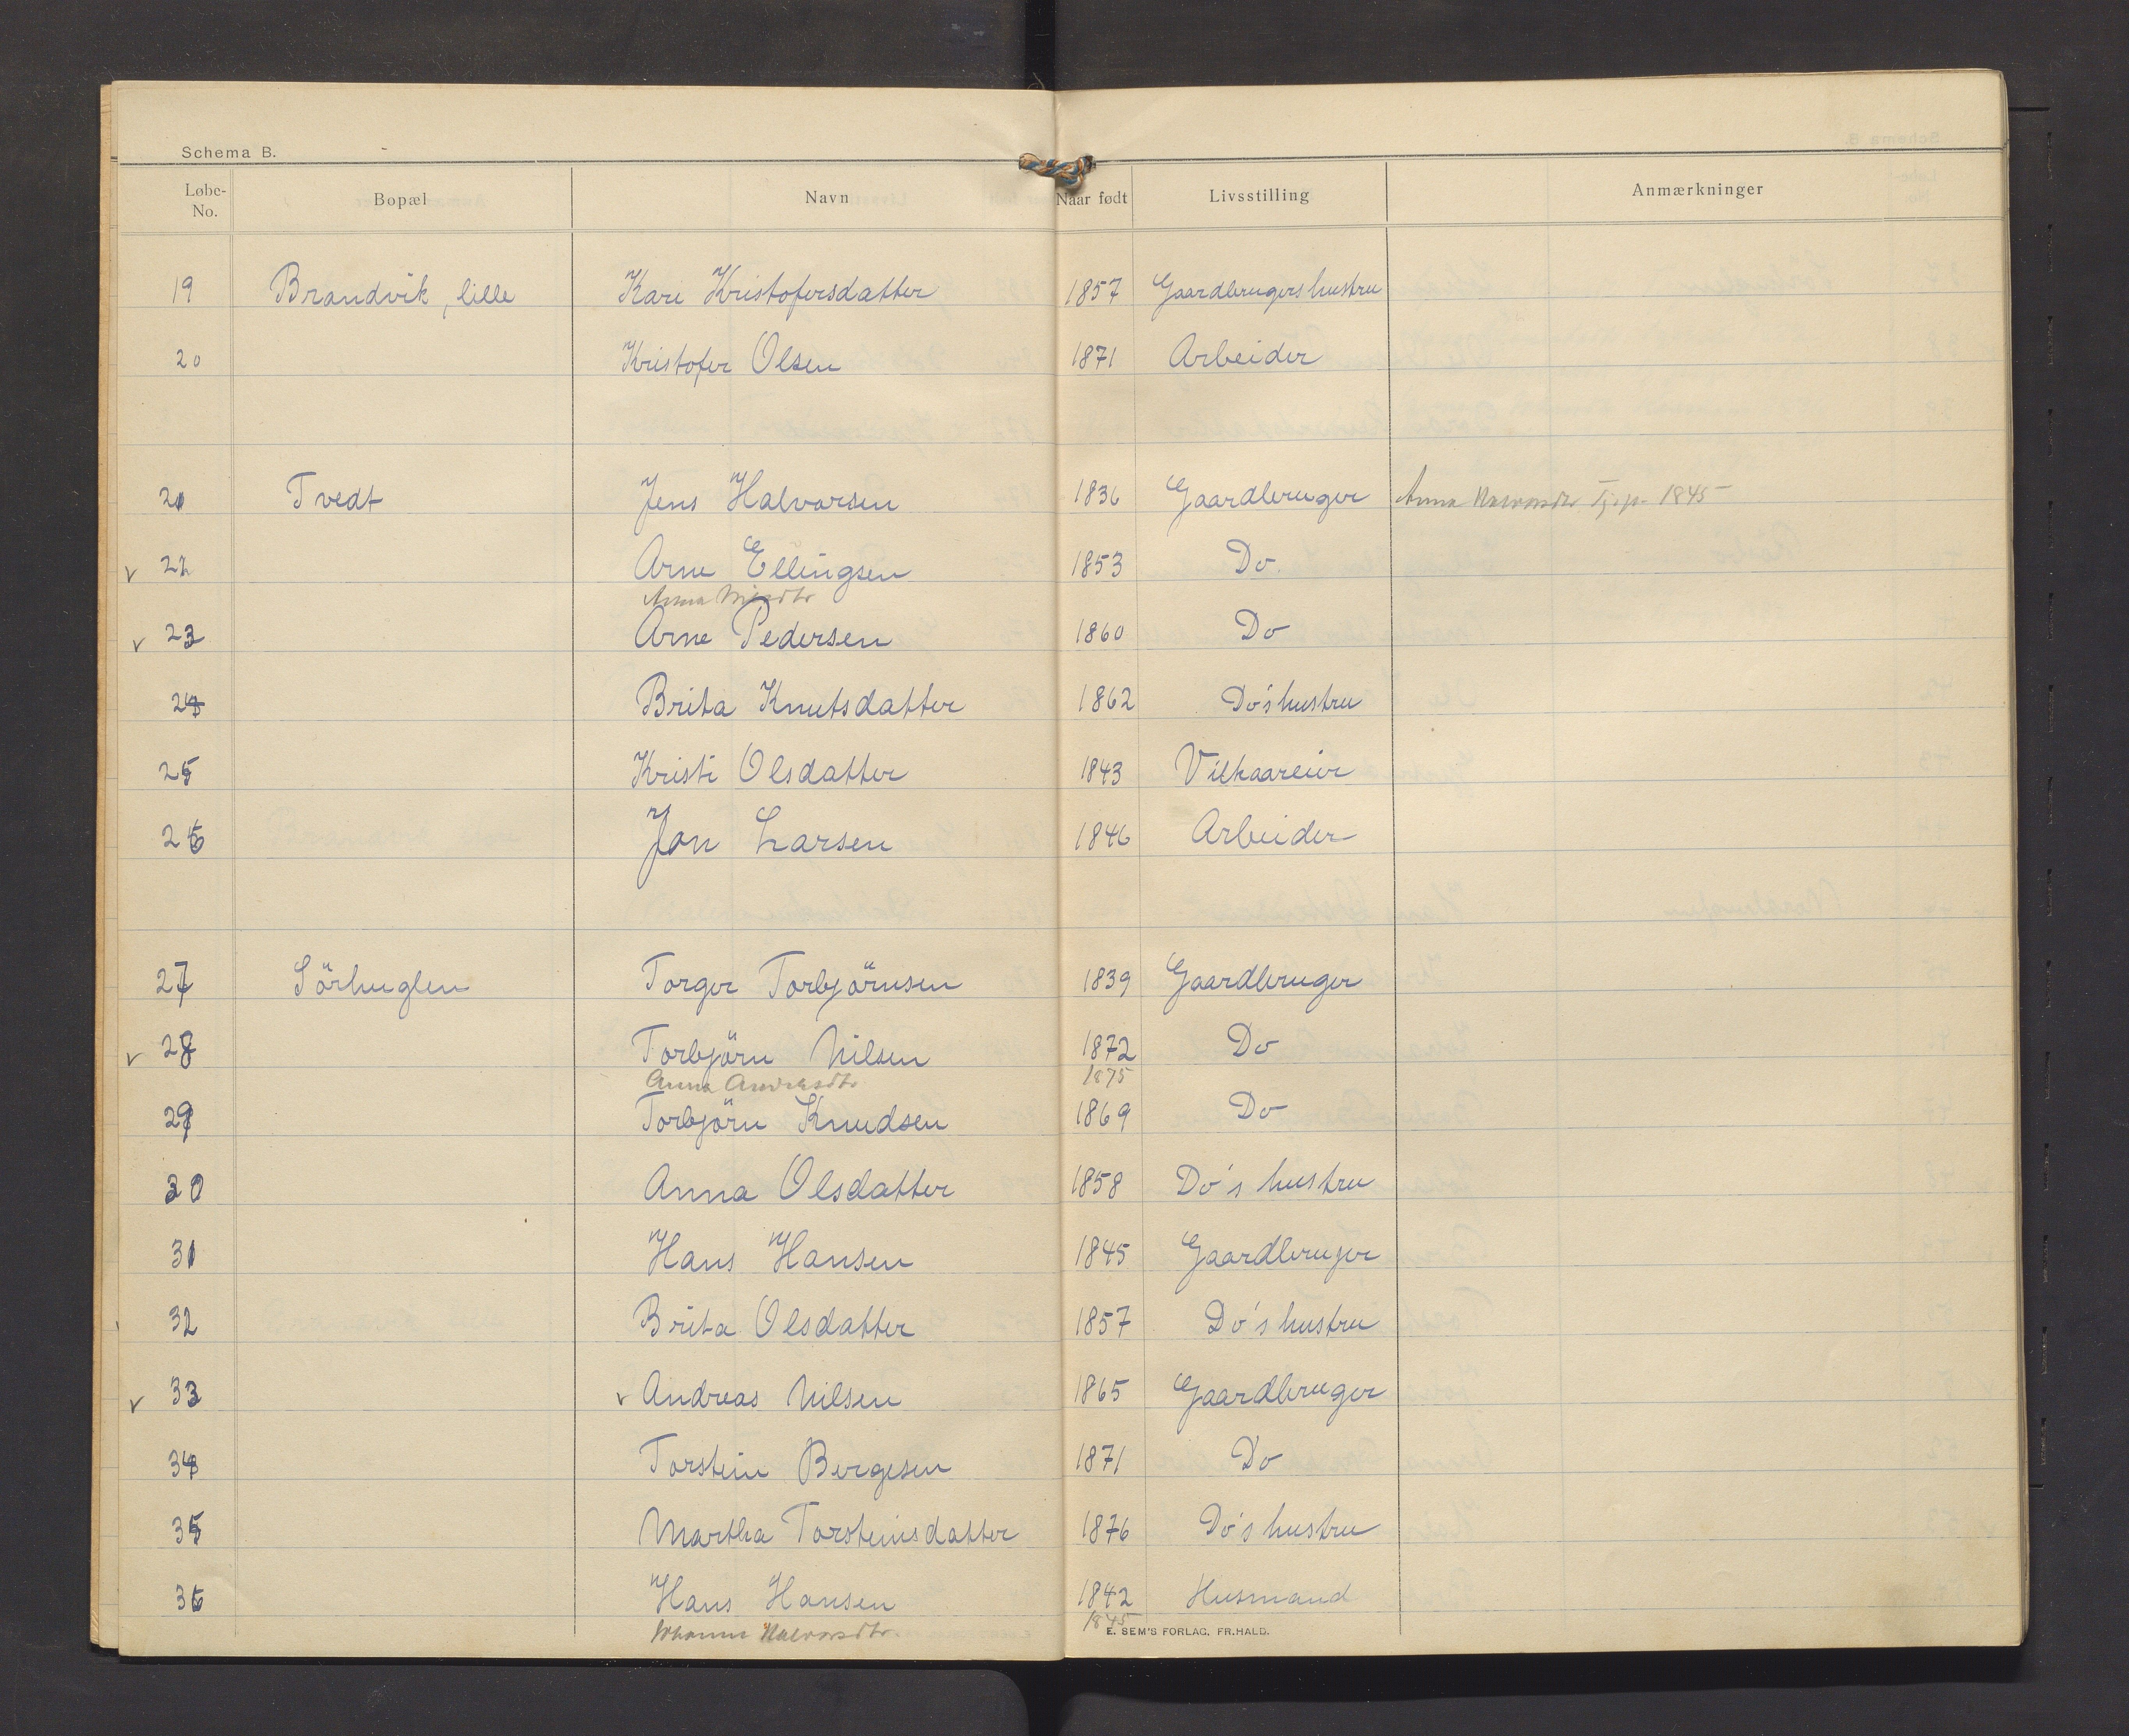 Schema B.
Løbe-No. Bopæl Navn Naar født Livsstilling Anmærkninger
19 Brandvik, lille Kari Kristofersdatter 1857 Gaardbrugers hustru
20 Kristofer Olsen 1871 Arbeider
21 Tvedt Jens Halvorsen 1836 Gaardbruger Anna Halvorsdtr 1845
v 22 Arne Ellingsen 1853 Do
Anna
v 23 Arne Pedersen 1860 Do
24 Brita Knutsdatter 1862 Do's hustru
25 Kristi Olsdatter 1843 Vilkaareier
26 Jon Larsen 1846 Arbeider
27 Sörhuglen Torger Torbjörnsen 1839 Gaardbruger
v 28 Torbjörn Nilsen 1872 Do
Anna Andreasdtr 1875
29 Torbjörn Knudsen 1869 Do
30 Anna Olsdatter 1858 Do's hustru
31 Hans Hansen 1845 Gaardbruger
32 Brita Olsdatter 1857 Do's hustru
v 33 v Andreas Nilsen 1865 Gaardbruger
34 Torstein Bergesen 1871 Do
35 Martha Torsteinsdatter 1876 Do's hustru
36 Hans Hansen 1842 Husmand
Johanne Halvorsdtr. 1845
E. SEM'S FORLAG, FR.HALD.